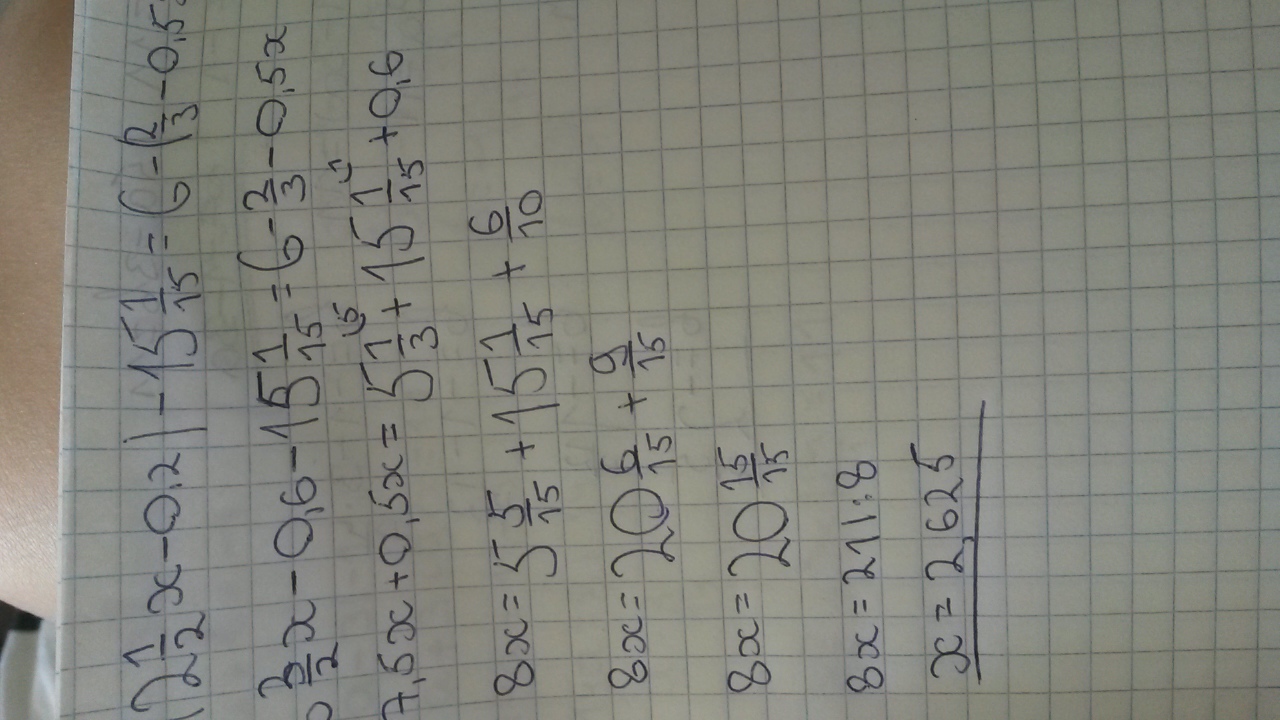 (2 1/2 x - 0,2) - 15 1/15 = 6 - (2/3 - 0,5
6 3/2 x - 0,6 - 15 1/15 = 6 - 2/3 - 0,5x
7,5x + 0,5x = 5 1/3 + 15 1/15 + 0,6
8x = 5 5/15 + 15 1/15 + 6/10
8x = 20 6/15 + 9/15
8x = 20 15/15
8x = 21 : 8
x = 2,625